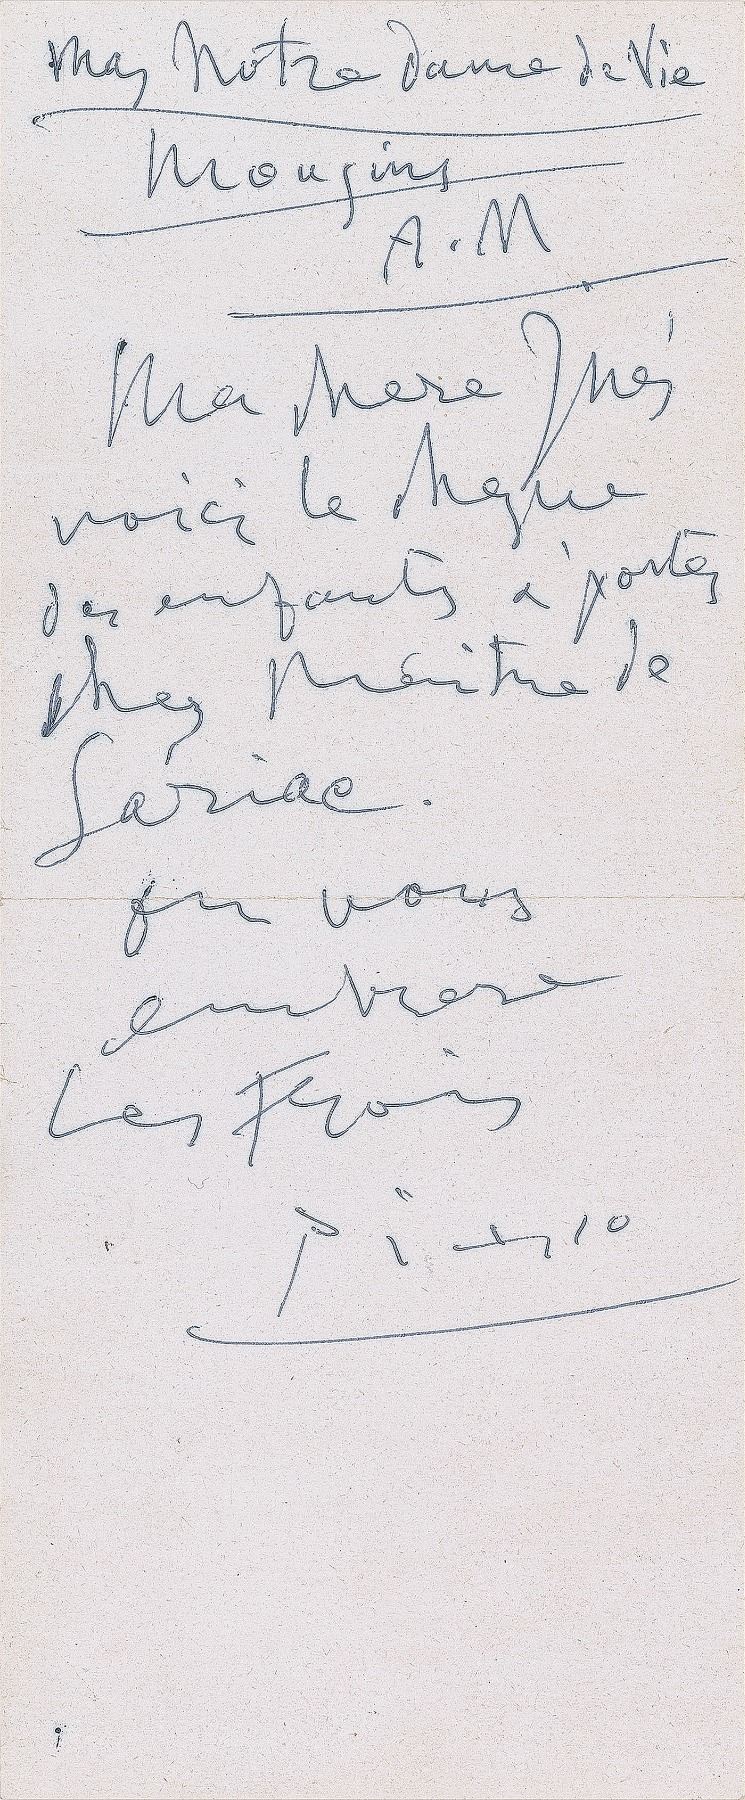 Mas Notre Dame de Vie
Mougins
A. M
Ma chere Inés
voici le cheque
des enfants à porter
chez Maitre de
Sariac.
on vous
embrase
Les
Picasso